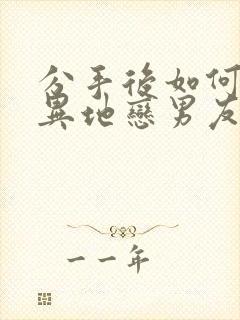 分手後如何
異地戀男友
一一年